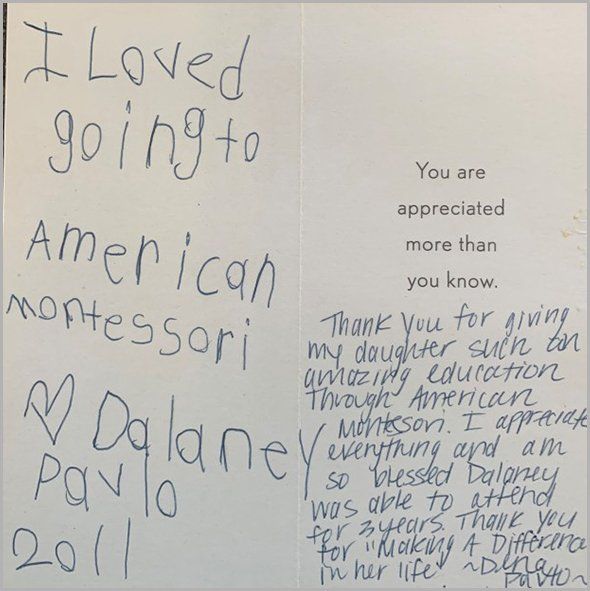 I Loved
going to
American
montessori
♡ Dalaney
Pavlo
2011
You are
appreciated
more than
you know.
Thank you for giving
my daughter such an
amazing education
Through American
Montessori. I appreciate
everything and am
so blessed Dalaney
was able to attend
for 3 years. Thank you
for "Making A Difference
in her life" ~Dena
Pavlo~